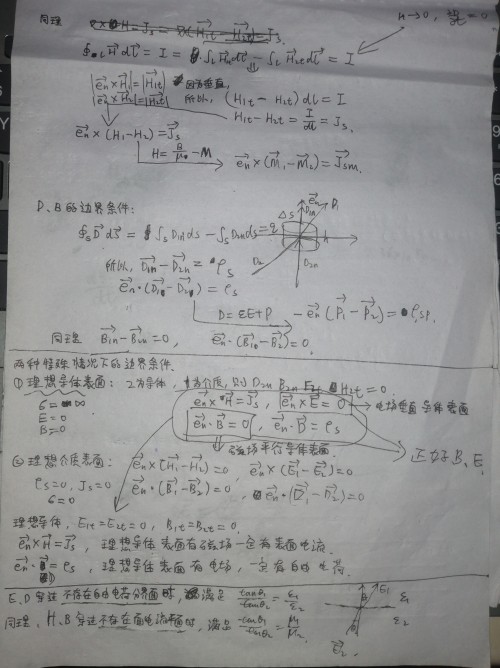 同理
h→0,
∮ H dl = I = ∫L H1t dl − ∫L H2t dl = I
|en × H1| = |H1t| 因为垂直,
|en × H2| = |H2t| 所以, (H1t − H2t) dl = I
H1t − H2t = I/dl = Js,
en × (H1 − H2) = Js
H = B/μ0 − M en × (M1 − M2) = Jsm.
D、B 的边界条件:
∮s D ds = ∫s D1n ds − ∫s D2n ds = q
所以, D1n − D2n = ρs
en · (D1 − D2) = ρs
D = εE + P − en (P1 − P2) = ρsp.
同理 B1n − B2n = 0, en · (B1 − B2) = 0.
ΔS en D1n D1 h D2 D2n
两种特殊情况下的边界条件.
① 理想导体表面: 2为导体, 1为介质, 则 D2n B2n E2t H2t = 0.
σ = ∞ en × H = Js, en × E = 0 → 电场垂直导体表面
E = 0
B = 0 en · B = 0, en · D = ρs
磁场平行导体表面. 正好 B、E
② 理想介质表面: en × (H1 − H2) = 0, en × (E1 − E2) = 0
ρs = 0, Js = 0 en · (B1 − B2) = 0, en · (D1 − D2) = 0
σ = 0
理想导体, E1t = E2t = 0, B1t = B2t = 0.
en × H = Js, 理想导体表面有磁场一定有表面电流.
en · D = ρs, 理想导体表面有电场, 一定有自由电荷.
E、D 穿过不存在自由电荷分界面时, 满足 tanθ1/tanθ2 = ε1/ε2
同理, H、B 穿过不存在面电流界面时, 满足 tanθ1/tanθ2 = μ1/μ2
E1 ε1 θ ε2 E2